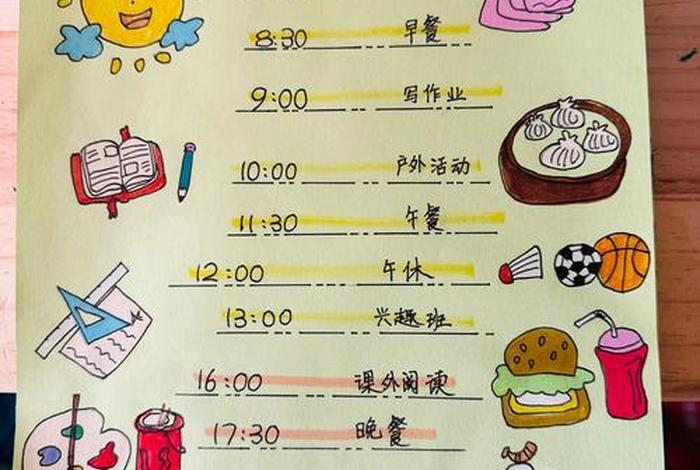 8:30 早餐
9:00 写作业
10:00 户外活动
11:30 午餐
12:00 午休
13:00 兴趣班
16:00 课外阅读
17:30 晚餐